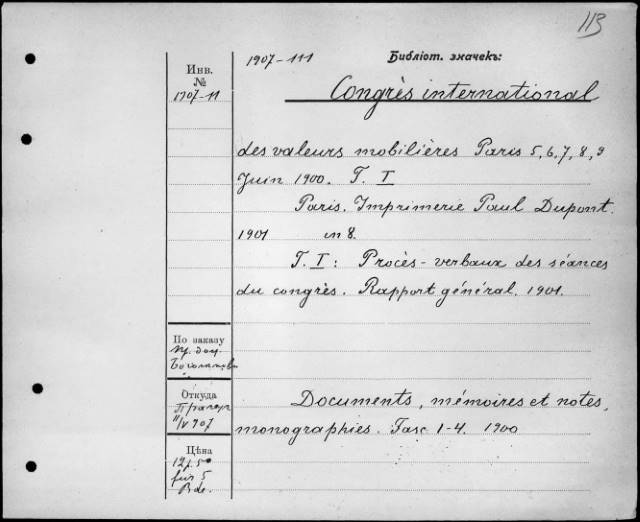 113
1907-111
Библіот. значекъ:
Инв.
№
1707-11
Congrès international
des valeurs mobilières Paris 5, 6, 7, 8, 9
Juin 1900. T. I
Paris. Imprimerie Paul Dupont.
1901 in 8.
T. I: Procès-verbaux des séances
du congrès. Rapport général. 1901.
По заказу
Откуда
11/V 907
Documents, mémoires et notes,
monographies. Fasc 1-4. 1900
Цѣна
für 5
Bde.